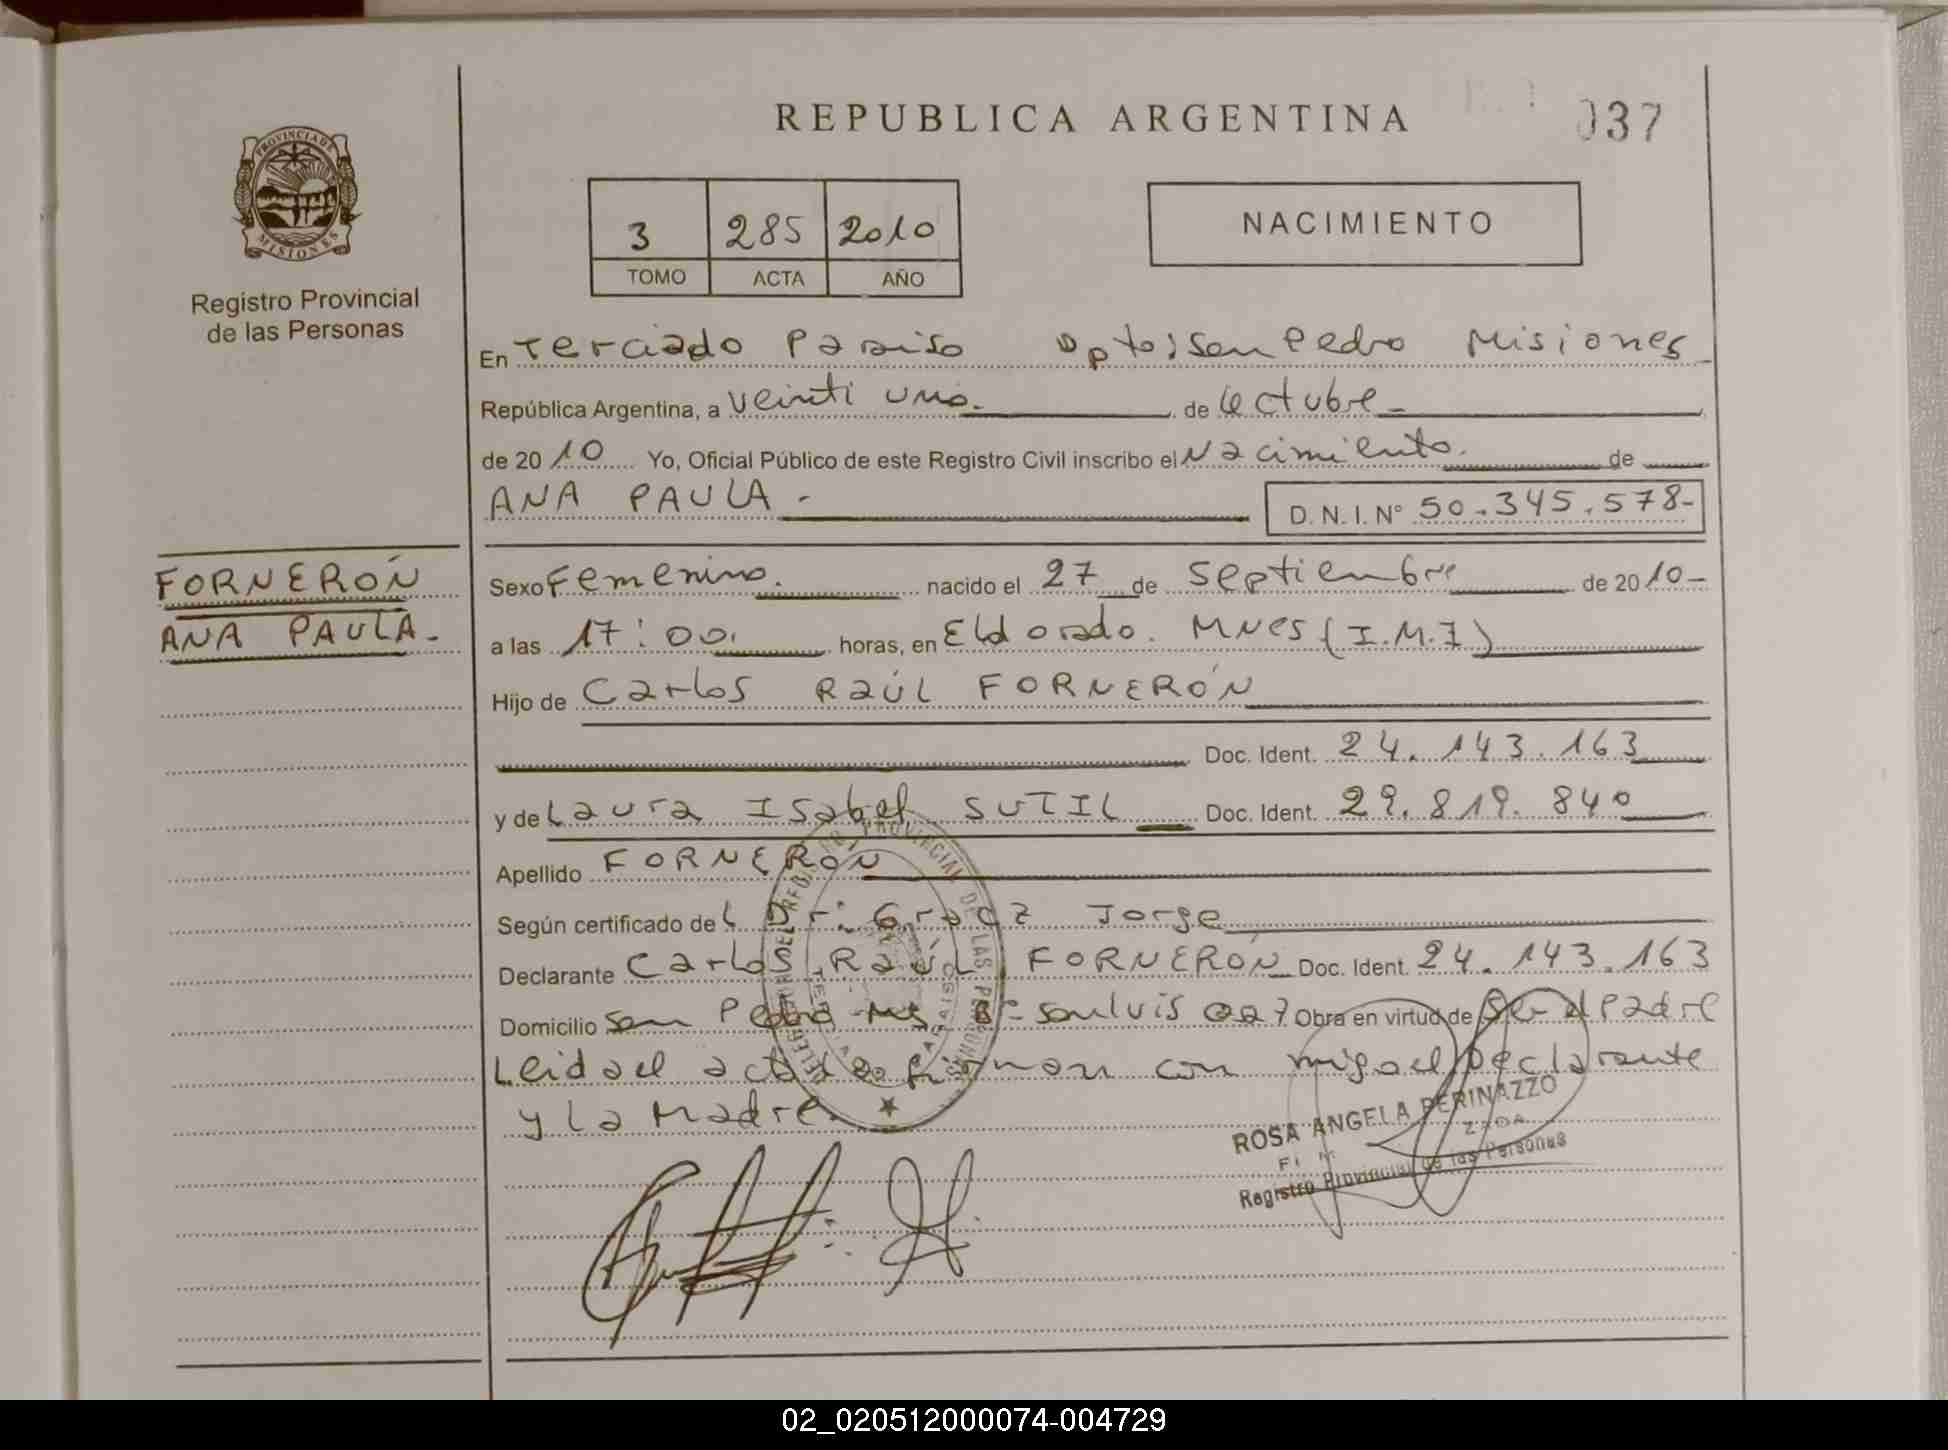 REPUBLICA ARGENTINA
037
PROVINCIA DE
MISIONES
Registro Provincial
de las Personas
3 285 2010
TOMO ACTA AÑO
NACIMIENTO
En Terciado Paraiso Dpto; San Pedro Misiones
República Argentina, a veinti uno.- de Octubre -
de 20 10 Yo, Oficial Público de este Registro Civil inscribo el Nacimiento. de
ANA PAULA - D. N. I. N° 50.345.578-
FORNERÓN
ANA PAULA.-
Sexo Femenino. nacido el 27 de septiembre de 20 10-
a las 17:00. horas, en Eldorado. Mnes (I.M.I)
Hijo de Carlos RAÚL FORNERÓN
Doc. Ident. 24.143.163
y de Laura Isabel SUTIL Doc. Ident. 29.819.840
Apellido FORNERON
Según certificado de Dr: Jorge
Declarante Carlos RAÚL FORNERÓN Doc. Ident. 24.143.163
Domicilio San Pedro Mnes San Luis Obra en virtud de Ser el Padre
Leida el acta la firman con migo el Declarante
y la Madre.
DELEGACION DEL REGISTRO PROVINCIAL DE LAS PERSONAS
TERCIADO PARAISO
ROSA ANGELA PERINAZZO
Registro Provincial de las Personas
02_020512000074-004729